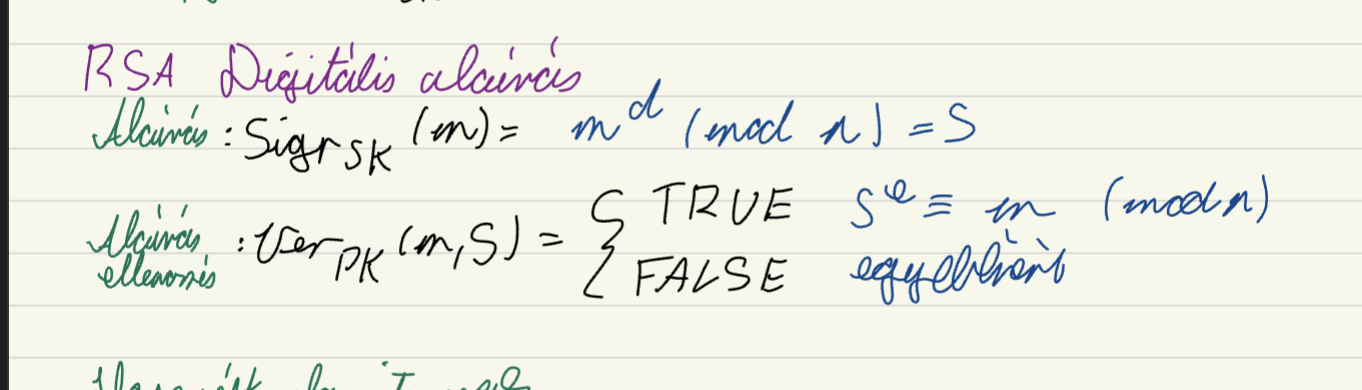 RSA Digitális aláírás
Aláírás : Sign_SK (m) = m^d (mod n) = S
Aláírás ellenorzés : Ver_PK (m, S) = { TRUE S^e ≡ m (mod n)
FALSE egyébként